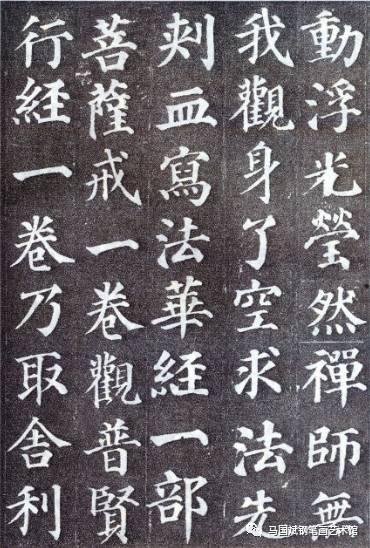 動浮光瑩然禪師無
我觀身了空求法先
刾血寫法華経一部
菩薩戒一卷觀普賢
行経一卷乃取舍利
马国斌钢笔画艺术馆